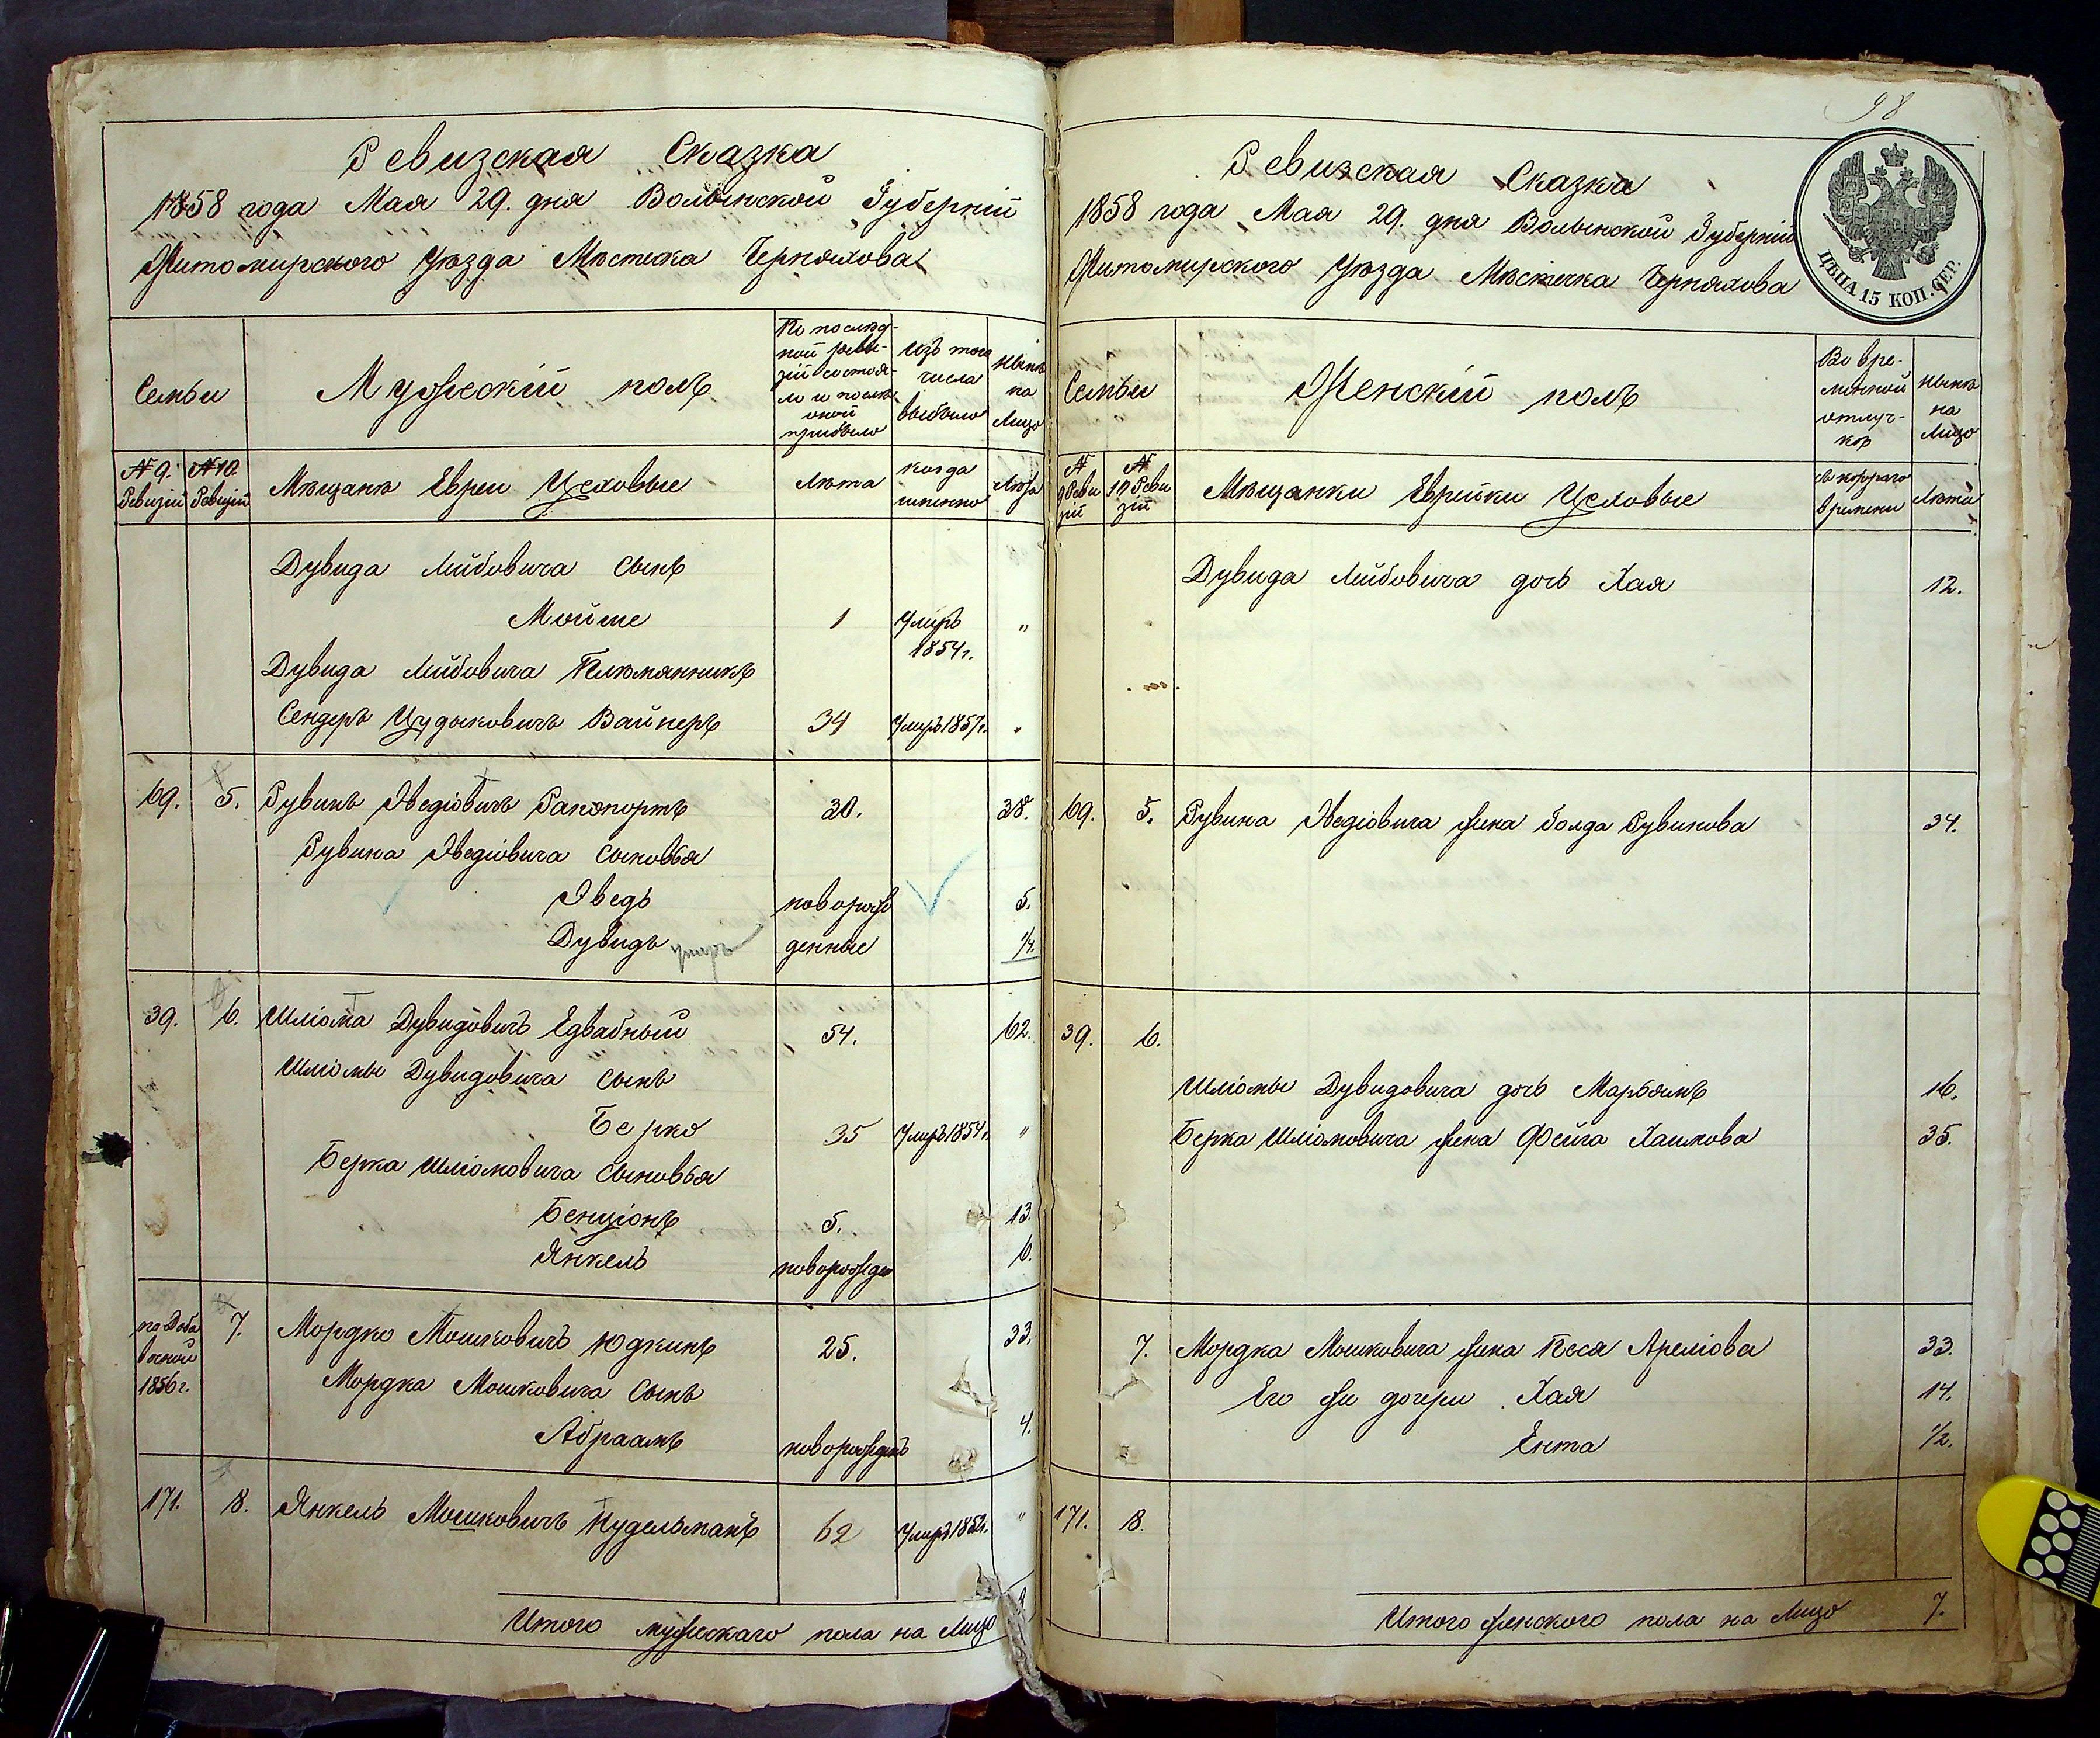 Ревизская Сказка
1858 года Мая 29. дня Волынской Губерніи
Житомирского Уѣзда Мѣстечка Черняхова
Семьи
Мужескій полъ
По послѣд-
ней реви-
зіи состоя-
ло и послѣ
оной
прибыло
Изъ того
числа
выбыло
Нынѣ
на
Лицо
№ 9. Ревизіи
№ 10 Ревизіи
Мѣщанѣ Евреи Цеховые
Лѣта
когда
именно
Лѣта
Дувида Лейбовича сынъ
Мойше 1 Умеръ 1854 г. "
Дувида Лейбовича Племянникъ
Сендеръ Цудыковичъ Вайнеръ 34 Умеръ 1857 г. "
69. 5. Рувинъ Эведіовичъ Рапопортъ 30. 38.
Рувина Эведіовича сыновья
Эведь новорож 5.
Дувидъ умеръ денные 1/4.
39. 6. Шліома Дувидовичъ Едвабный 54. 62.
Шліомы Дувидовича сынъ
Берко 35 Умеръ 1854 г. "
Берка Шліомовича сыновья
Бенціонъ 5. 13.
Янкель новорожден 6.
по Доба
вочной
1856 г.
7. Мордко Мошковичъ Юдкинъ 25. 33.
Мордка Мошковича сынъ
Абраамъ новорожденъ 4.
171. 8. Янкель Мошковичъ Нудельманъ 62 Умеръ 1852 г. "
Итого мужескаго пола на Лицо
98
Ревизская Сказка
1858 года Мая 29. дня Волынской Губерніи
Житомирского Уѣзда Мѣстечка Черняхова
ЦѢНА 15 КОП. СЕР.
Семьи
Женскій полъ
Во вре-
менной
отлуч-
кѣ
Нынѣ
на
Лицо
№ 9 Реви зіи
№ 10 Реви зіи
Мѣщанки Еврейки Цеховые
съ котораго
времени
Лѣта
Дувида Лейбовича дочь Хая 12.
69. 5. Рувина Эведіовича жена Голда Рувинова 34.
39. 6.
Шліомы Дувидовича дочь Марьямъ 16.
Берка Шліомовича жена Фейга Хаимова 35.
7. Мордка Мошковича жена Песя Ареліова 33.
Его же дочери Хая 14.
Ента 1/2.
171. 8.
Итого женского пола на Лицо 7.